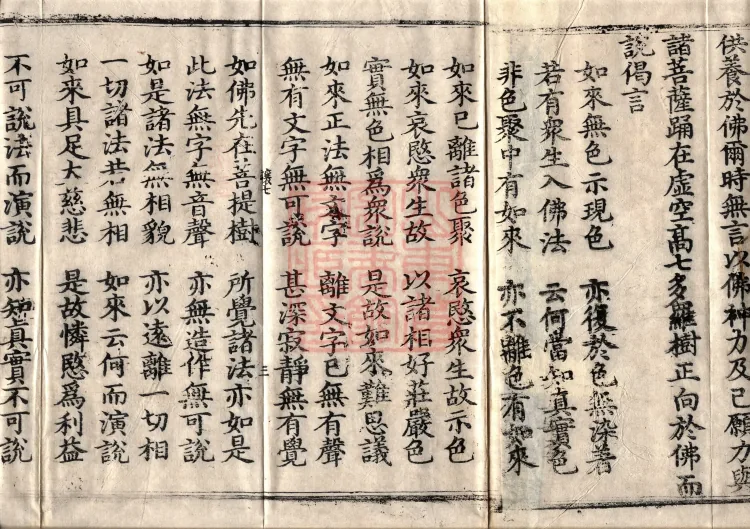 供養於佛爾時無言以佛神力及己願力與
諸菩薩踊在虛空高七多羅樹正向於佛而
說偈言
如來無色示現色　亦復於色無染著
若有衆生入佛法　云何當知真實色
非色聚中有如來　亦不離色有如來
如來已離諸色聚　哀愍衆生故示色
如來哀愍衆生故　以諸相好莊嚴色
實無色相爲衆說　是故如來難思議
如來正法無文字　離文字已無有聲
無有文字無可說　甚深寂靜無有覺
讓七　三
如佛先在菩提樹　所覺諸法亦如是
此法無字無音聲　亦無造作無可說
如是諸法無相貌　亦以遠離一切相
一切諸法若無相　如來云何而演說
如來具足大慈悲　是故憐愍爲利益
不可說法而演說　亦知真實不可說